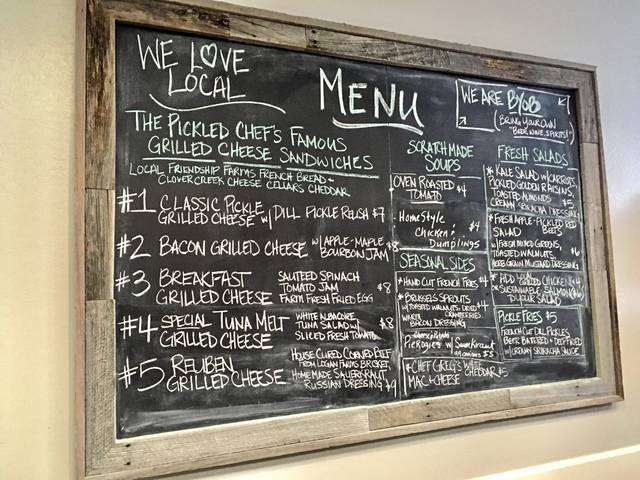 WE LOVE
LOCAL
MENU
WE ARE BYOB
(BRING YOUR OWN
"BEER, WINE, SPIRITS!")
THE PICKLED CHEF'S FAMOUS
GRILLED CHEESE SANDWICHES
LOCAL FRIENDSHIP FARMS FRENCH BREAD
CLOVER CREEK CHEESE CELLARS CHEDDAR
#1 CLASSIC PICKLE
GRILLED CHEESE w/ DILL PICKLE RELISH $7
#2 BACON GRILLED CHEESE w/ APPLE-MAPLE
BOURBON JAM $8
#3 BREAKFAST
GRILLED CHEESE
SAUTEED SPINACH
TOMATO JAM
FARM FRESH FRIED EGG $8
#4 SPECIAL TUNA MELT
GRILLED CHEESE
WHITE ALBACORE
TUNA SALAD w/
SLICED FRESH TOMATO $8
#5 REUBEN
GRILLED CHEESE
HOUSE CURED CORNED BEEF
FROM LOGAN FARMS BRISKET
HOMEMADE SAUERKRAUT
RUSSIAN DRESSING $9
SCRATCH MADE
SOUPS
OVEN ROASTED
TOMATO $4
HomeStyle
Chicken & $4
Dumplings
SEASONAL SIDES
* HAND CUT FRENCH FRIES $4
* BRUSSELS SPROUTS
w/ TOASTED WALNUTS, DRIED $4
CRANBERRIES
WARM
BACON DRESSING
Pierogies w/ Sauerkraut
onions $5
* CHEF GREG'S WHITE CHEDDAR $5
MAC & CHEESE
FRESH SALADS
* KALE SALAD w/ CARROTS,
PICKLED GOLDEN RAISINS,
TOASTED ALMONDS $5
CREAMY SRIRACHA DRESSING
* FRESH APPLE - PICKLED RED
BEETS
SALAD
w/ FRESH MIXED GREENS,
TOASTED WALNUTS, $6
HERB GRAIN MUSTARD DRESSING
* ADD GRILLED CHICKEN $4
OR SUSTAINABLE SALMON $6
TO YOUR SALAD
PICKLE FRIES $5
FRENCH CUT DILL PICKLES,
BEER BATTERED & DEEP FRIED
w/ CREAMY SRIRACHA SAUCE